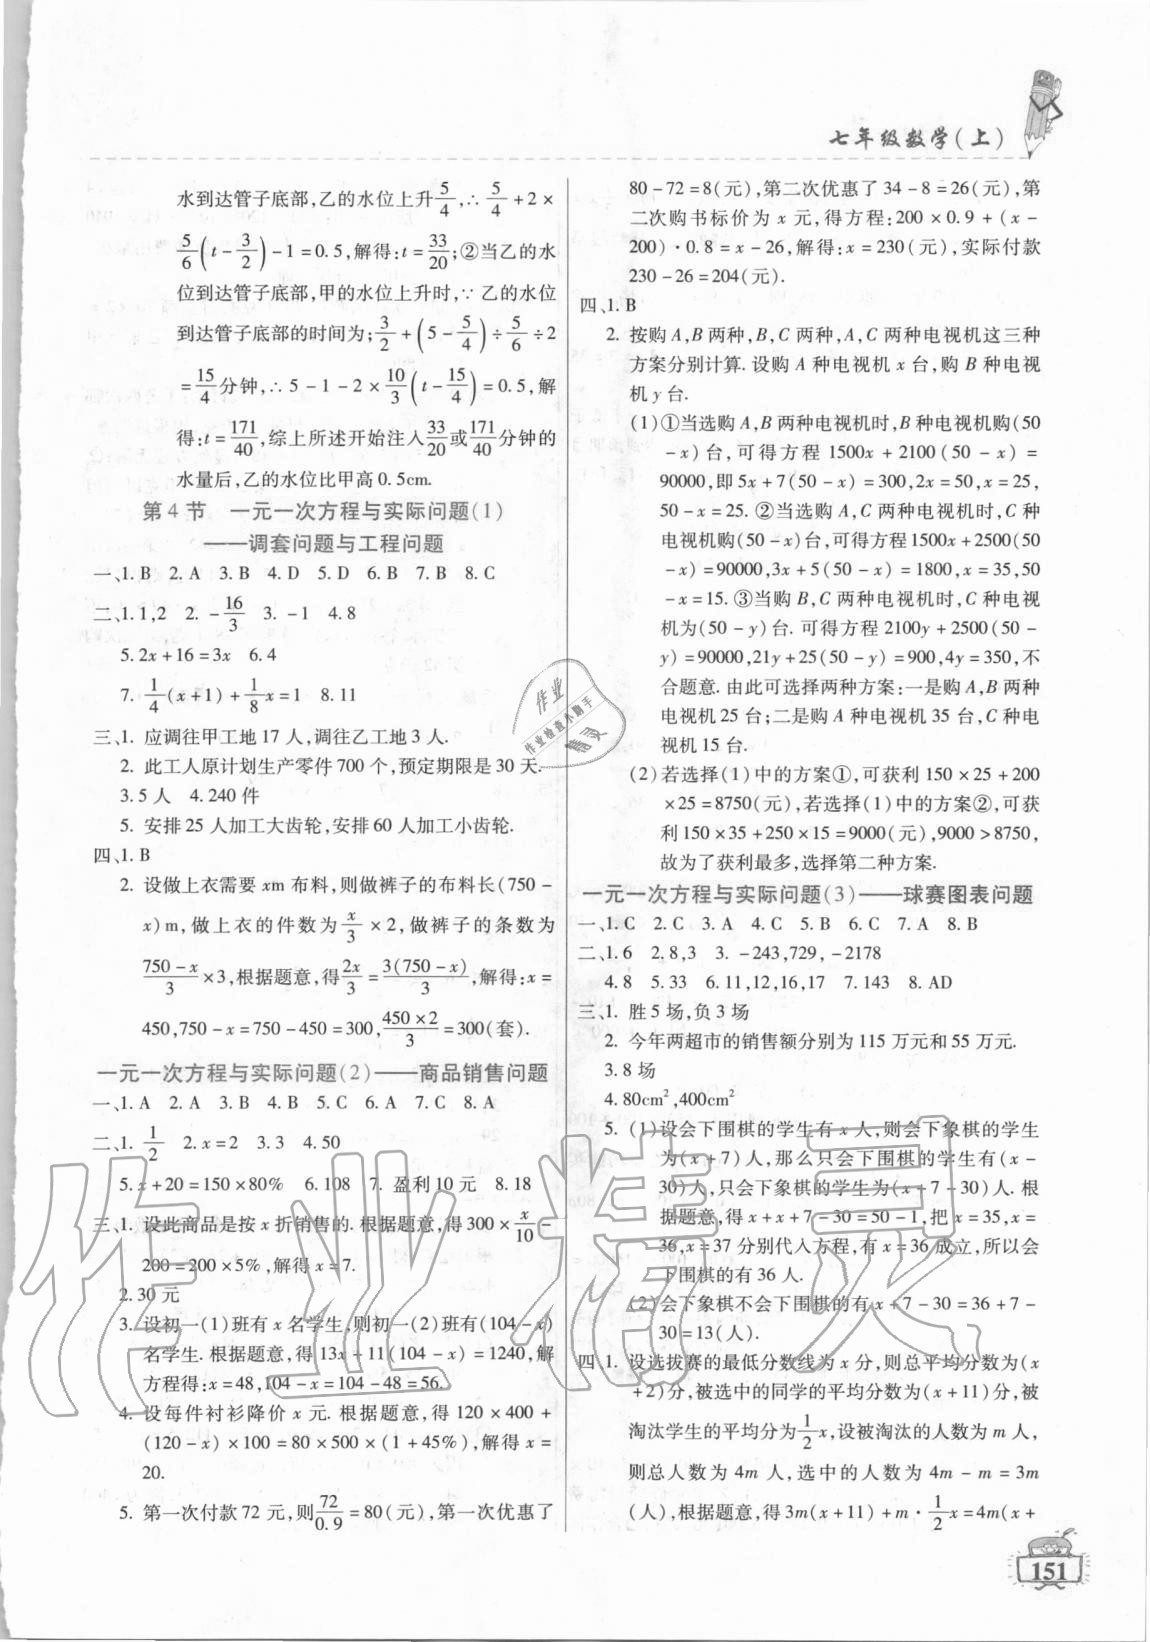 七年级数学(上)
水到达管子底部,乙的水位上升5/4,∴5/4+2×
5/6(t-3/2)-1=0.5,解得:t=33/20;②当乙的水
位到达管子底部,甲的水位上升时,∵乙的水位
到达管子底部的时间为;3/2+(5-5/4)÷5/6÷2
=15/4分钟,∴5-1-2×10/3(t-15/4)=0.5,解
得:t=171/40,综上所述开始注入33/20或171/40分钟的
水量后,乙的水位比甲高0.5cm.
第4节 一元一次方程与实际问题(1)
——调套问题与工程问题
一、1.B 2.A 3.B 4.D 5.D 6.B 7.B 8.C
二、1.1,2 2.-16/3 3.-1 4.8
5.2x+16=3x 6.4
7.1/4(x+1)+1/8x=1 8.11
三、1.应调往甲工地17人,调往乙工地3人.
2.此工人原计划生产零件700个,预定期限是30天.
3.5人 4.240件
5.安排25人加工大齿轮,安排60人加工小齿轮.
四、1.B
2.设做上衣需要xm布料,则做裤子的布料长(750-
x)m,做上衣的件数为x/3×2,做裤子的条数为
750-x/3×3,根据题意,得2x/3=3(750-x)/3,解得:x=
450,750-x=750-450=300,450×2/3=300(套).
一元一次方程与实际问题(2)——商品销售问题
一、1.A 2.A 3.B 4.B 5.C 6.A 7.C 8.A
二、1.1/2 2.x=2 3.3 4.50
5.x+20=150×80% 6.108 7.盈利10元 8.18
三、1.设此商品是按x折销售的.根据题意,得300×x/10-
200=200×5%,解得x=7.
2.30元
3.设初一(1)班有x名学生,则初一(2)班有(104-x)
名学生.根据题意,得13x+11(104-x)=1240,解
方程得:x=48,104-x=104-48=56.
4.设每件衬衫降价x元.根据题意,得120×400+
(120-x)×100=80×500×(1+45%),解得x=
20.
5.第一次付款72元,则72/0.9=80(元),第一次优惠了
80-72=8(元),第二次优惠了34-8=26(元),第
二次购书标价为x元,得方程:200×0.9+(x-
200)·0.8=x-26,解得:x=230(元),实际付款
230-26=204(元).
四、1.B
2.按购A,B两种,B,C两种,A,C两种电视机这三种
方案分别计算.设购A种电视机x台,购B种电视
机y台.
(1)①当选购A,B两种电视机时,B种电视机购(50
-x)台,可得方程1500x+2100(50-x)=
90000,即5x+7(50-x)=300,2x=50,x=25,
50-x=25.②当选购A,C两种电视机时,C种
电视机购(50-x)台,可得方程1500x+2500(50
-x)=90000,3x+5(50-x)=1800,x=35,50
-x=15.③当购B,C两种电视机时,C种电视
机为(50-y)台.可得方程2100y+2500(50-
y)=90000,21y+25(50-y)=900,4y=350,不
合题意.由此可选择两种方案:一是购A,B两种
电视机25台;二是购A种电视机35台,C种电
视机15台.
(2)若选择(1)中的方案①,可获利150×25+200
×25=8750(元),若选择(1)中的方案②,可获
利150×35+250×15=9000(元),9000>8750,
故为了获利最多,选择第二种方案.
一元一次方程与实际问题(3)——球赛图表问题
一、1.C 2.C 3.A 4.C 5.B 6.C 7.A 8.B
二、1.6 2.8,3 3.-243,729,-2178
4.8 5.33 6.11,12,16,17 7.143 8.AD
三、1.胜5场,负3场
2.今年两超市的销售额分别为115万元和55万元.
3.8场
4.80cm²,400cm²
5.(1)设会下围棋的学生有x人,则会下象棋的学生
为(x+7)人,那么只会下围棋的学生有(x-
30)人,只会下象棋的学生为(x+7-30)人.根
据题意,得x+x+7-30=50-1,把x=35,x=
36,x=37分别代入方程,有x=36成立,所以会
下围棋的有36人.
(2)会下象棋不会下围棋的有x+7-30=36+7-
30=13(人).
四 1.设选拔赛的最低分数线为x分,则总平均分数为(x
+2)分,被选中的同学的平均分数为(x+11)分,被
淘汰学生的平均分为1/2x,设被淘汰的人数为m人,
则总人数为4m人,选中的人数为4m-m=3m
(人),根据题意,得3m(x+11)+m·1/2x=4m(x+
151
作业
作业检查小助手
精灵
作业精灵